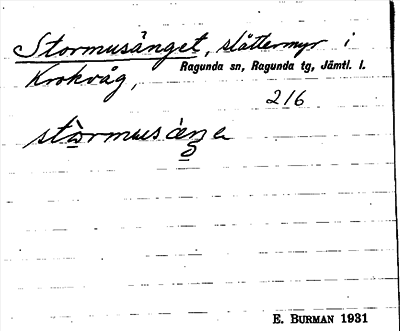 Stormusänget, slåttermyr i
Krokvåg, Ragunda sn, Ragunda tg, Jämtl. l.
216
E. BURMAN 1931